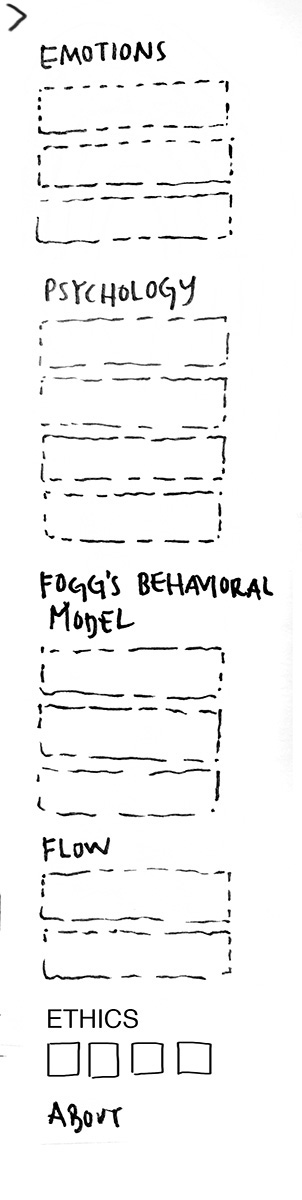 >
EMOTIONS
PSYCHOLOGY
FOGG'S BEHAVIORAL
MODEL
FLOW
ETHICS
ABOUT